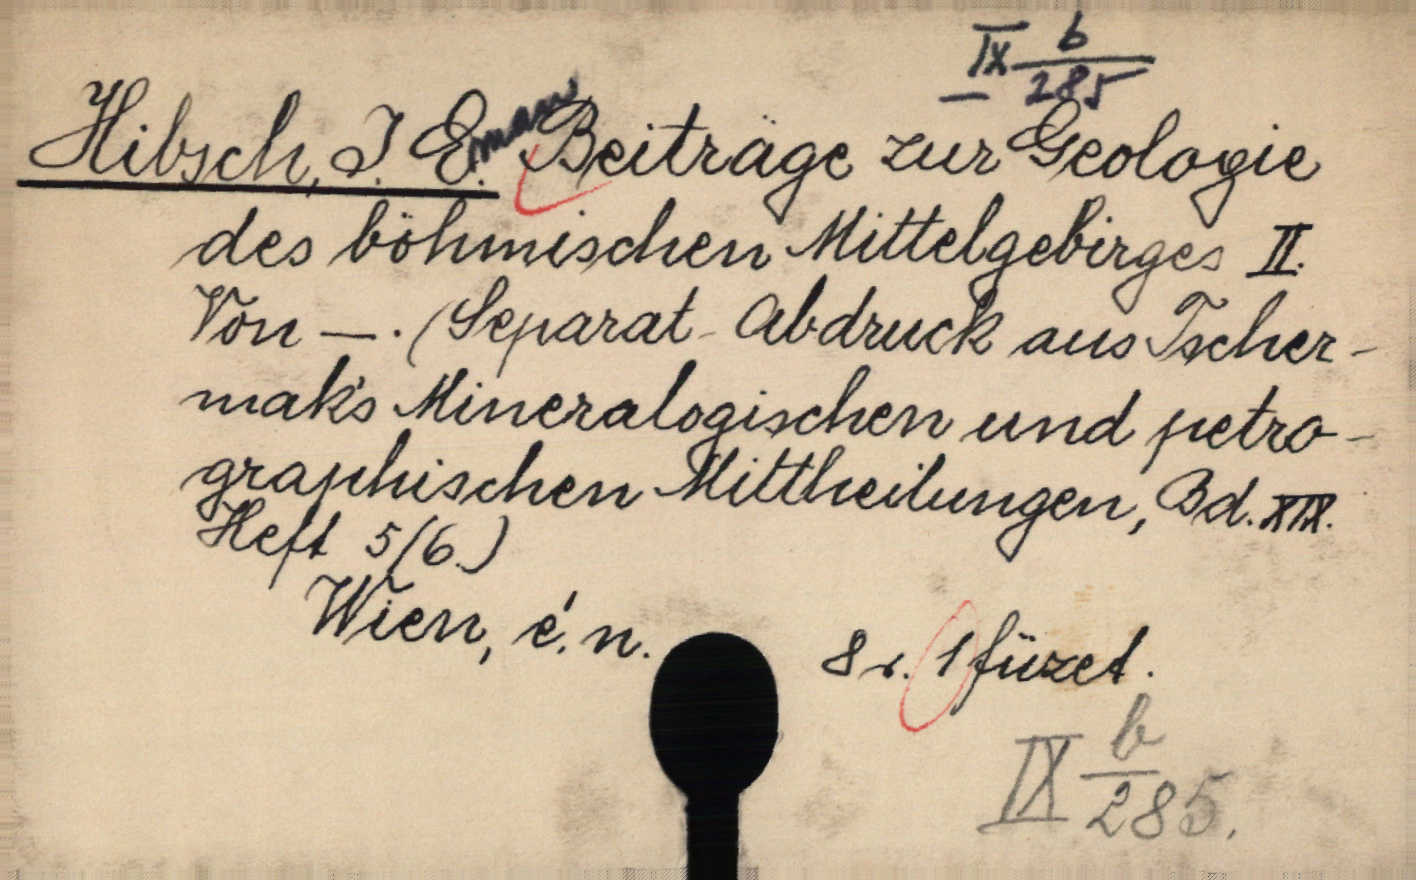 IX b/285
Hibsch, J. E.man Beiträge zur Geologie
des böhmischen Mittelgebirges II.
Von —. (Separat-Abdruck aus Tscher-
mak's Mineralogischen und petro-
graphischen Mittheilungen, Bd. XIX.
Heft 5/6.)
Wien, é. n.
8 r. 1 füzet.
IX b/285.